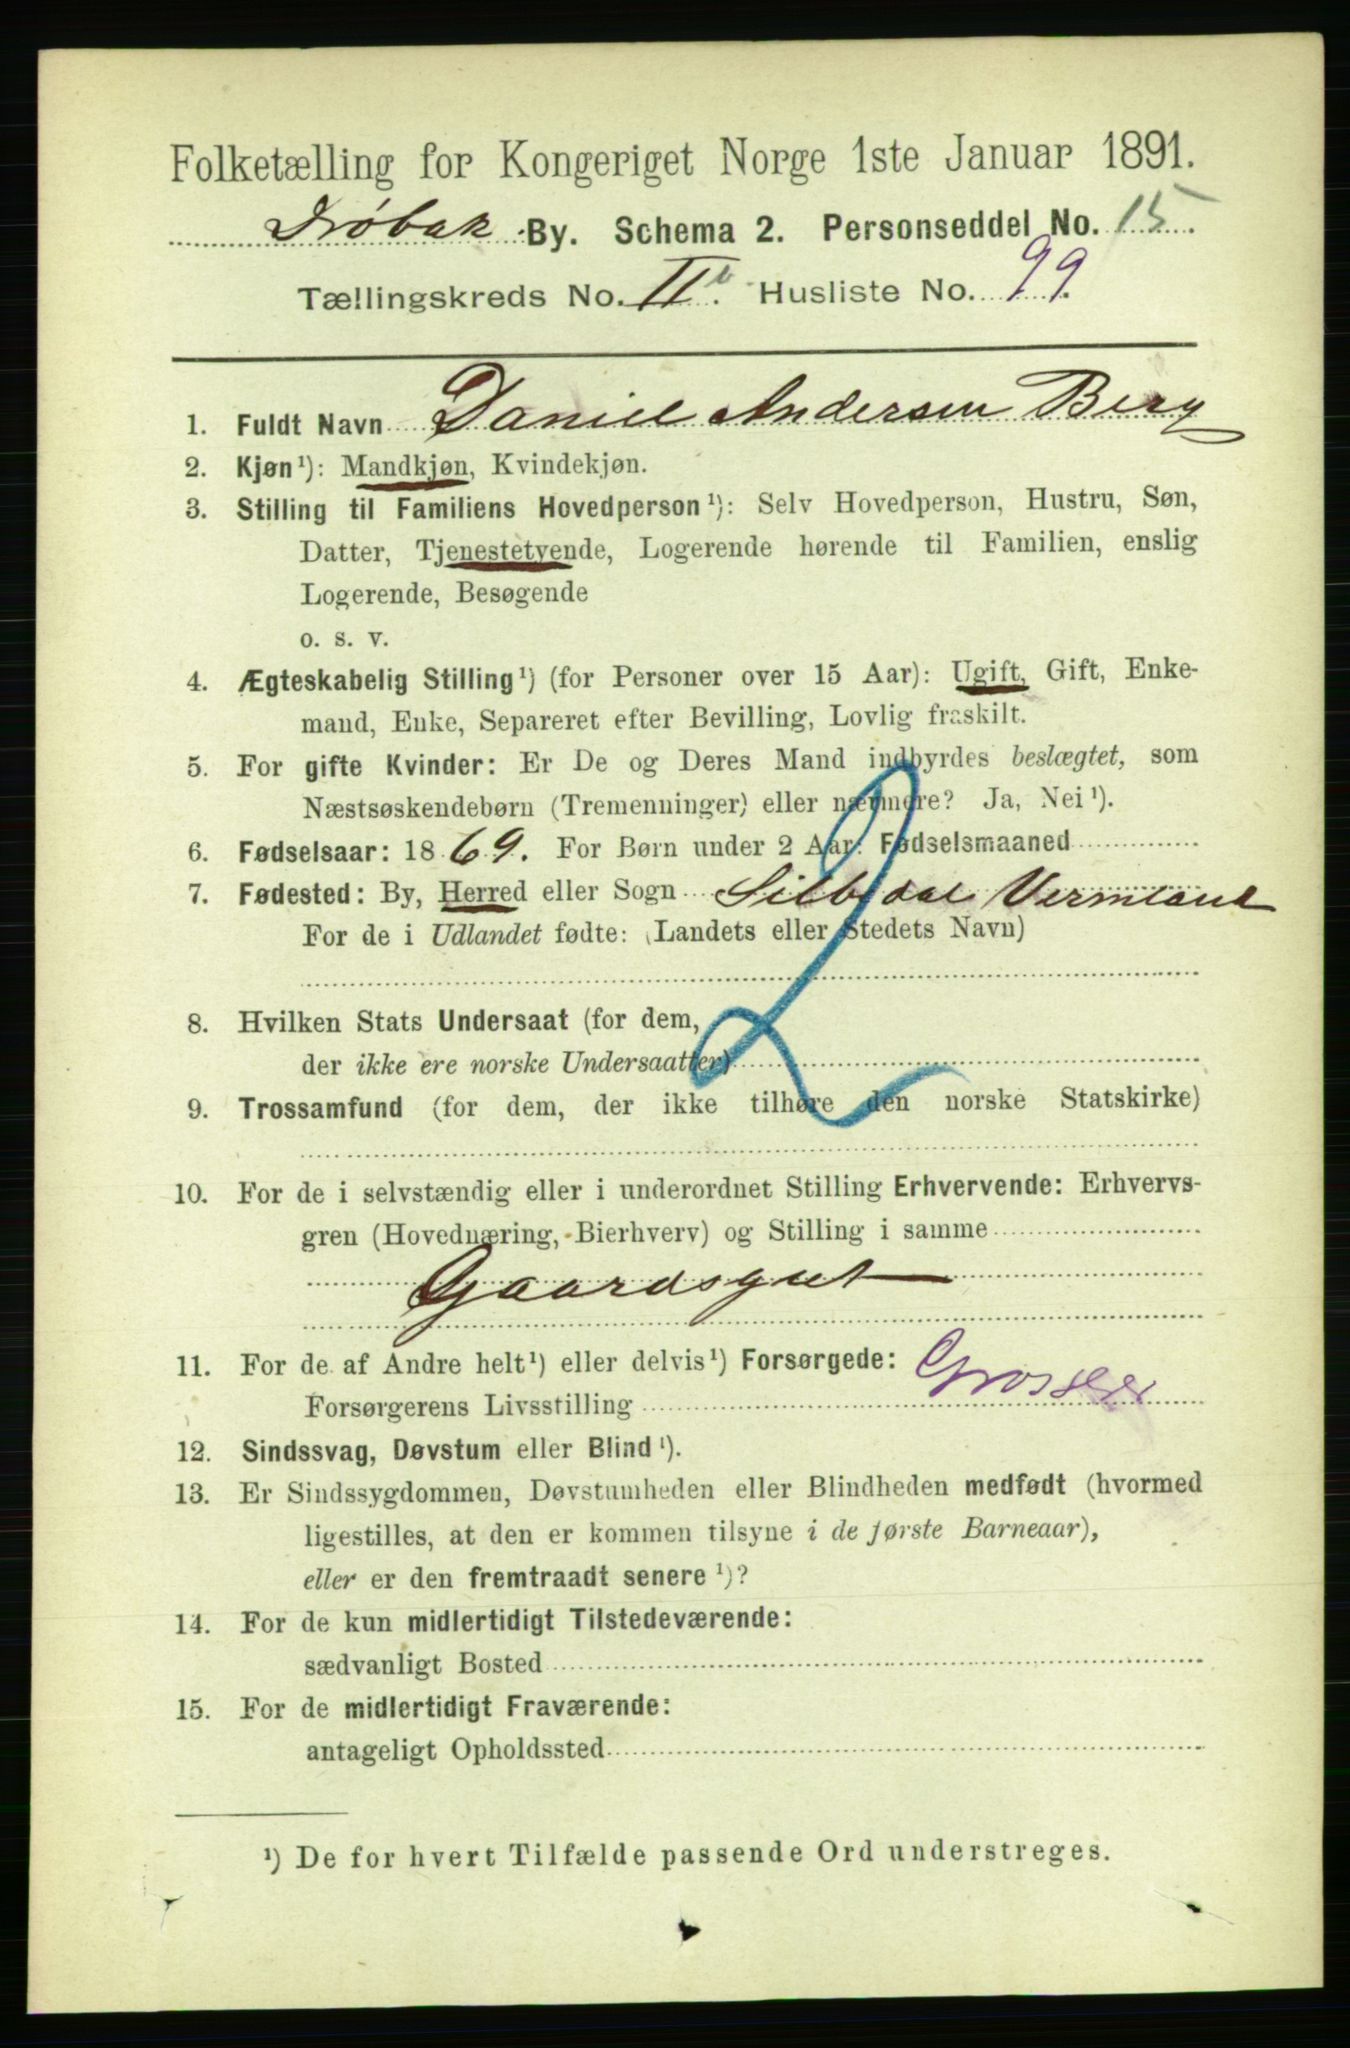 Folketælling for Kongeriget Norge 1ste Januar 1891.
Drøbak By. Schema 2. Personseddel No. 15.
Tællingskreds No. II b. Husliste No. 99.
1. Fuldt Navn Daniel Andersen Berg
2. Kjøn¹): Mandkjøn, Kvindekjøn.
3. Stilling til Familiens Hovedperson¹): Selv Hovedperson, Hustru, Søn,
Datter, Tjenestetyende, Logerende hørende til Familien, enslig
Logerende, Besøgende
o. s. v.
4. Ægteskabelig Stilling¹) (for Personer over 15 Aar): Ugift, Gift, Enke-
mand, Enke, Separeret efter Bevilling, Lovlig fraskilt.
5. For gifte Kvinder: Er De og Deres Mand indbyrdes beslægtet, som
Næstsøskendebørn (Tremenninger) eller nærmere? Ja, Nei¹).
6. Fødselsaar: 1869. For Børn under 2 Aar: Fødselsmaaned
7. Fødested: By, Herred eller Sogn Silbodal Vermland
For de i Udlandet fødte: (Landets eller Stedets Navn)
8. Hvilken Stats Undersaat (for dem,
der ikke ere norske Undersaatter)
2
9. Trossamfund (for dem, der ikke tilhøre den norske Statskirke)
10. For de i selvstændig eller i underordnet Stilling Erhvervende: Erhvervs-
gren (Hovednæring, Bierhverv) og Stilling i samme
Gaardsgut
11. For de af Andre helt¹) eller delvis¹) Forsørgede:
Forsørgerens Livsstilling
12. Sindssvag, Døvstum eller Blind¹).
13. Er Sindssygdommen, Døvstumheden eller Blindheden medfødt (hvormed
ligestilles, at den er kommen tilsyne i de første Barneaar),
eller er den fremtraadt senere¹)?
14. For de kun midlertidigt Tilstedeværende:
sædvanligt Bosted
15. For de midlertidigt Fraværende:
antageligt Opholdssted
¹) De for hvert Tilfælde passende Ord understreges.